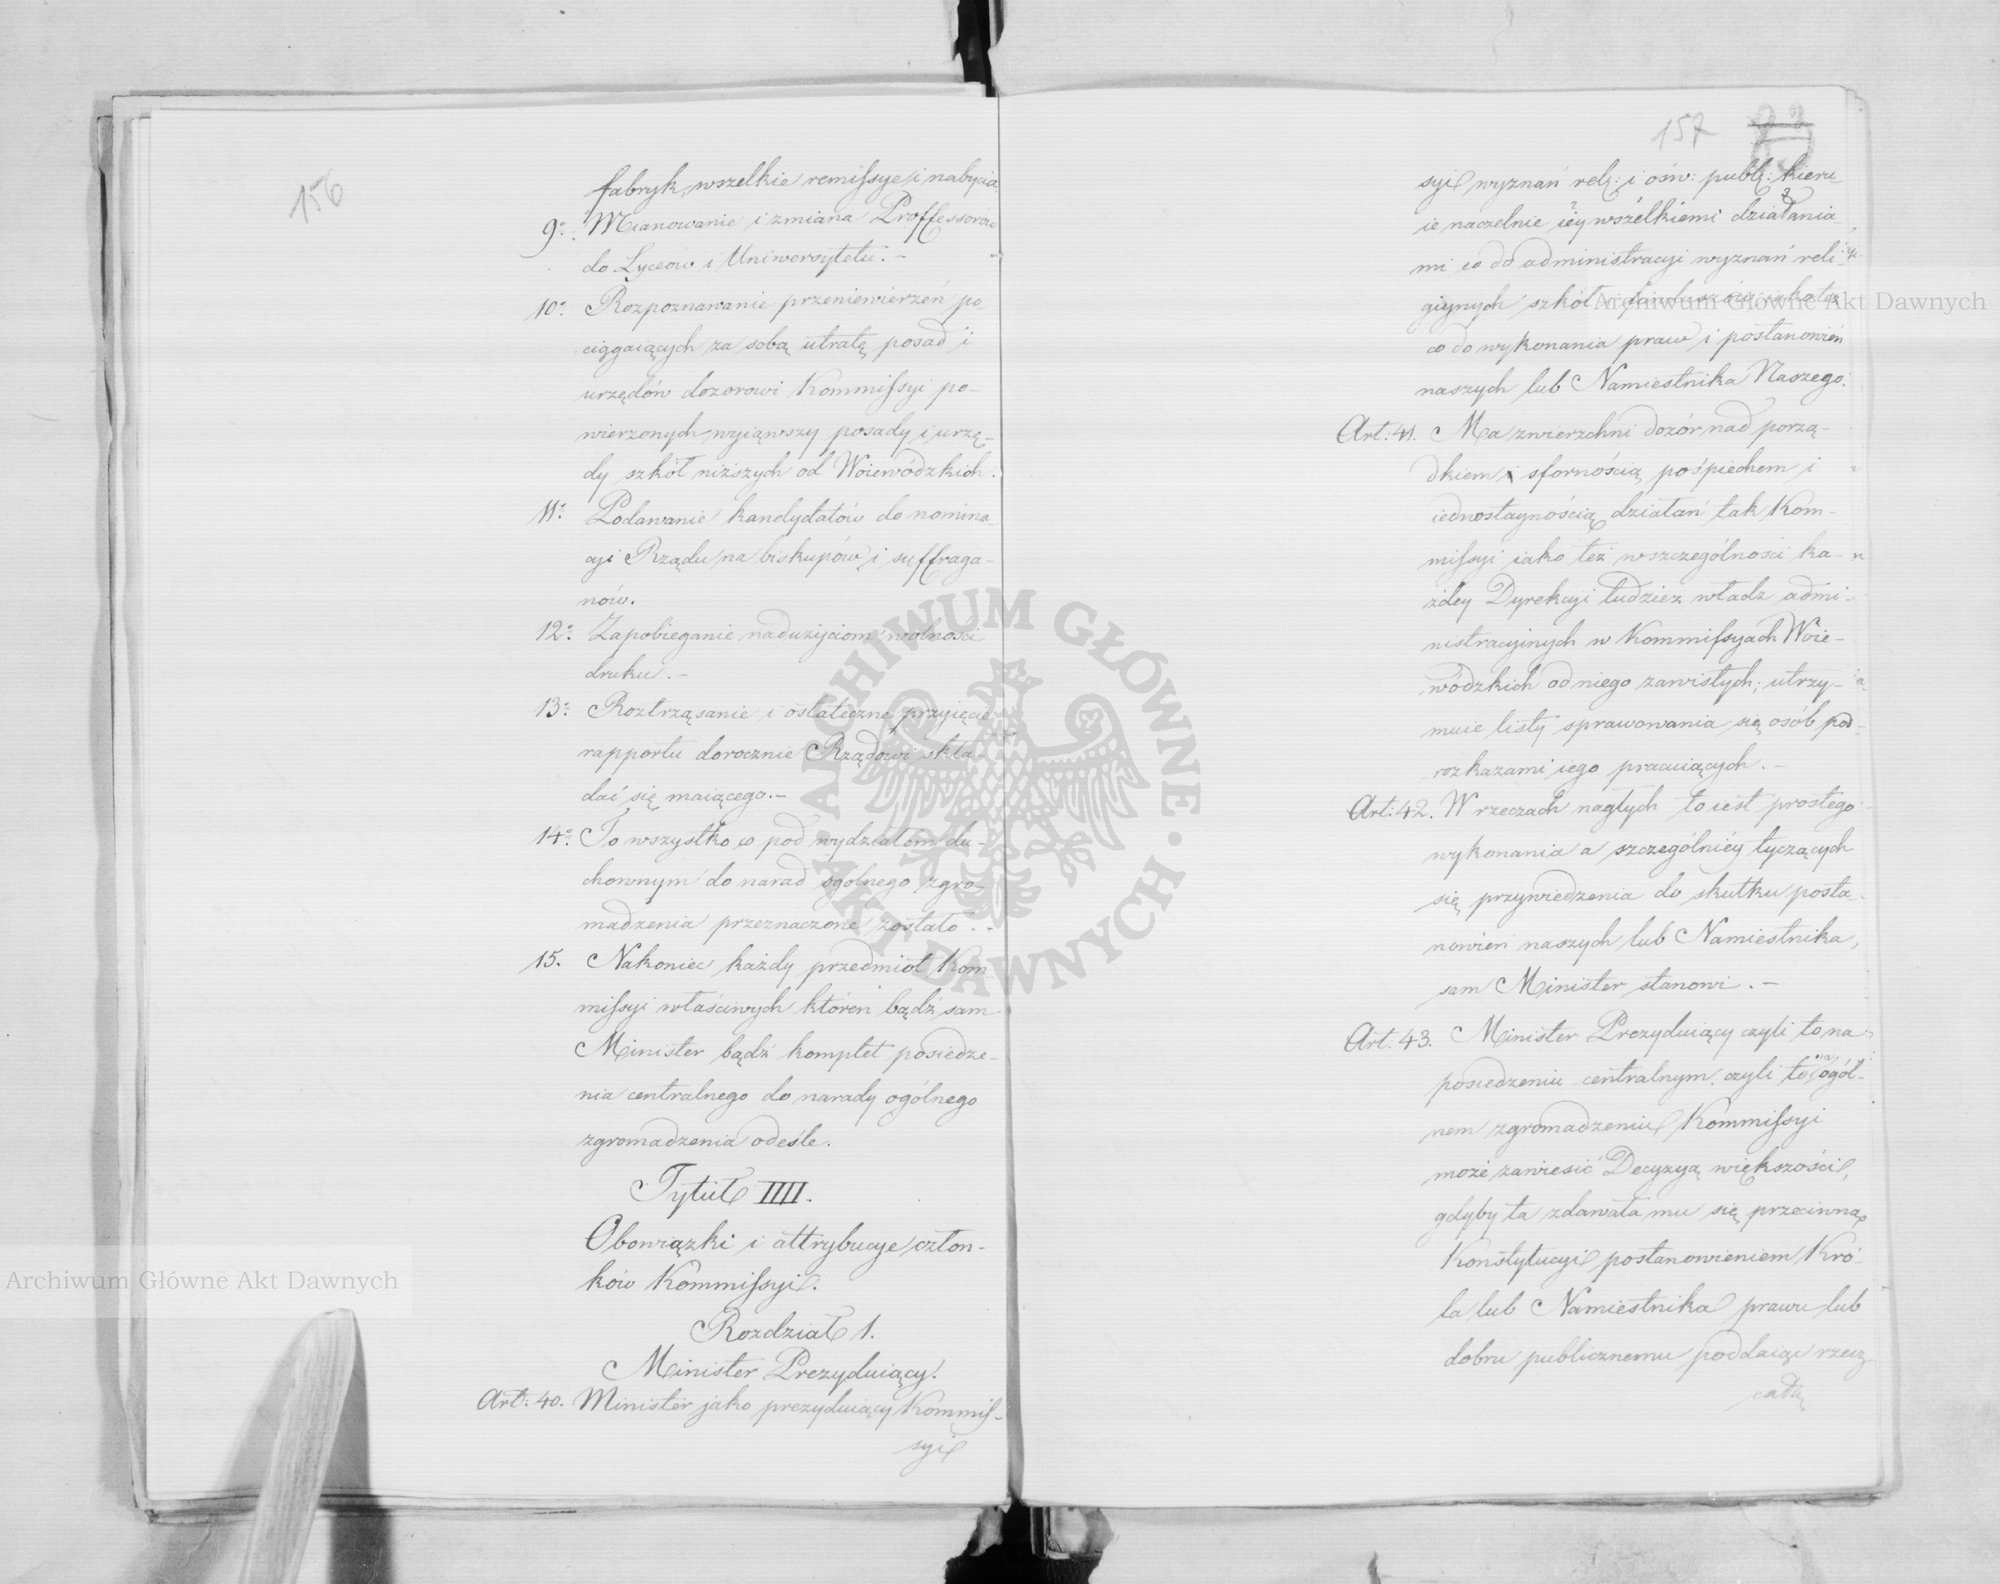 156
fabryk, wszelkie remissye i nabycia.
9o. Mianowanie i zmiana Proffessorów
do Lyceów i Uniwersytetu. –
10o. Rozpoznawanie przeniewierzeń po-
ciągaiących za sobą utratę posad i
urzędów dozorowi Kommissyi po-
wierzonych, wyiąwszy posady i urzę-
dy szkół niższych od Woiewódzkich.
11o. Podawanie kandydatów do nomina-
cyi Rządu na biskupów i suffraga-
nów.
12o. Zapobieganie nadużyciom wolności
druku. –
13o. Roztrząsanie i ostateczne przyięcie
rapportu dorocznie Rządowi skła-
dać się maiącego. –
14o. To wszystko co pod wydziałem du-
chownym do narad ogólnego zgro-
madzenia przeznaczone zostało. –
15. Nakoniec każdy przedmiot Kom-
missyi właściwych któren bądź sam
Minister bądź komplet posiedze-
nia centralnego do narady ogólnego
zgromadzenia odeśle.
Tytuł IIII.
Obowiązki i attrybucye człon-
ków Kommissyi.
Rozdział 1.
Minister Prezyduiący.
Art: 40. Minister jako prezyduiący Kommis-
syi
157
syi wyznań relg: i ośw: publ: kieru-
ie naczelnie iey wszelkiemi działania
mi co do administracyi wyznań reli-
giynych szkół i funduszów iako też
co do wykonania praw i postanowień
naszych lub Namiestnika Naszego.
Art: 41. Ma zwierzchni dozór nad porzą-
dkiem i sfornością pośpiechem i
iednostaynością działań tak Kom-
missyi iako też w szczególności ka-
żdey Dyrekcyi tudzież władz admi-
nistracyinych w Kommissyach Woie-
wódzkich od niego zawisłych; utrzy-
muie listy sprawowania się osób pod
rozkazami iego pracuiących. –
Art: 42. W rzeczach nagłych to iest prostego
wykonania a szczególniéy tyczących
się przywiedzenia do skutku posta-
nowień naszych lub Namiestnika,
sam Minister stanowi. –
Art: 43. Minister Prezyduiący czyli to na
posiedzeniu centralnym czyli to na ogól-
nem zgromadzeniu Kommissyi
może zawiesić Decyzyą większości,
gdyby ta zdawała mu się przeciwną
Konstytucyi postanowieniem Kró-
la lub Namiestnika prawu lub
dobru publicznemu poddaiąc rzecz
całą
Archiwum Główne Akt Dawnych
Archiwum Główne Akt Dawnych
ARCHIWUM GŁÓWNE · AKT DAWNYCH ·